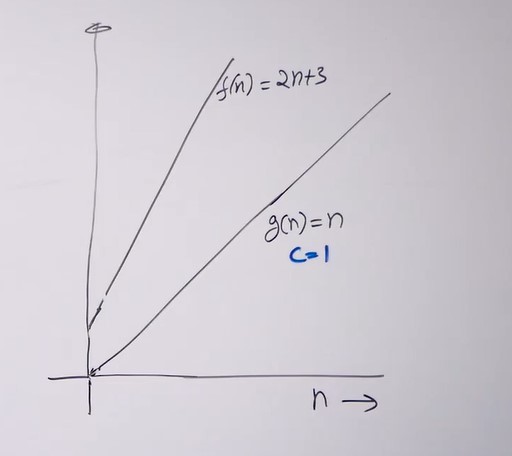 f(n) = 2n+3
g(n) = n
C=1
n →